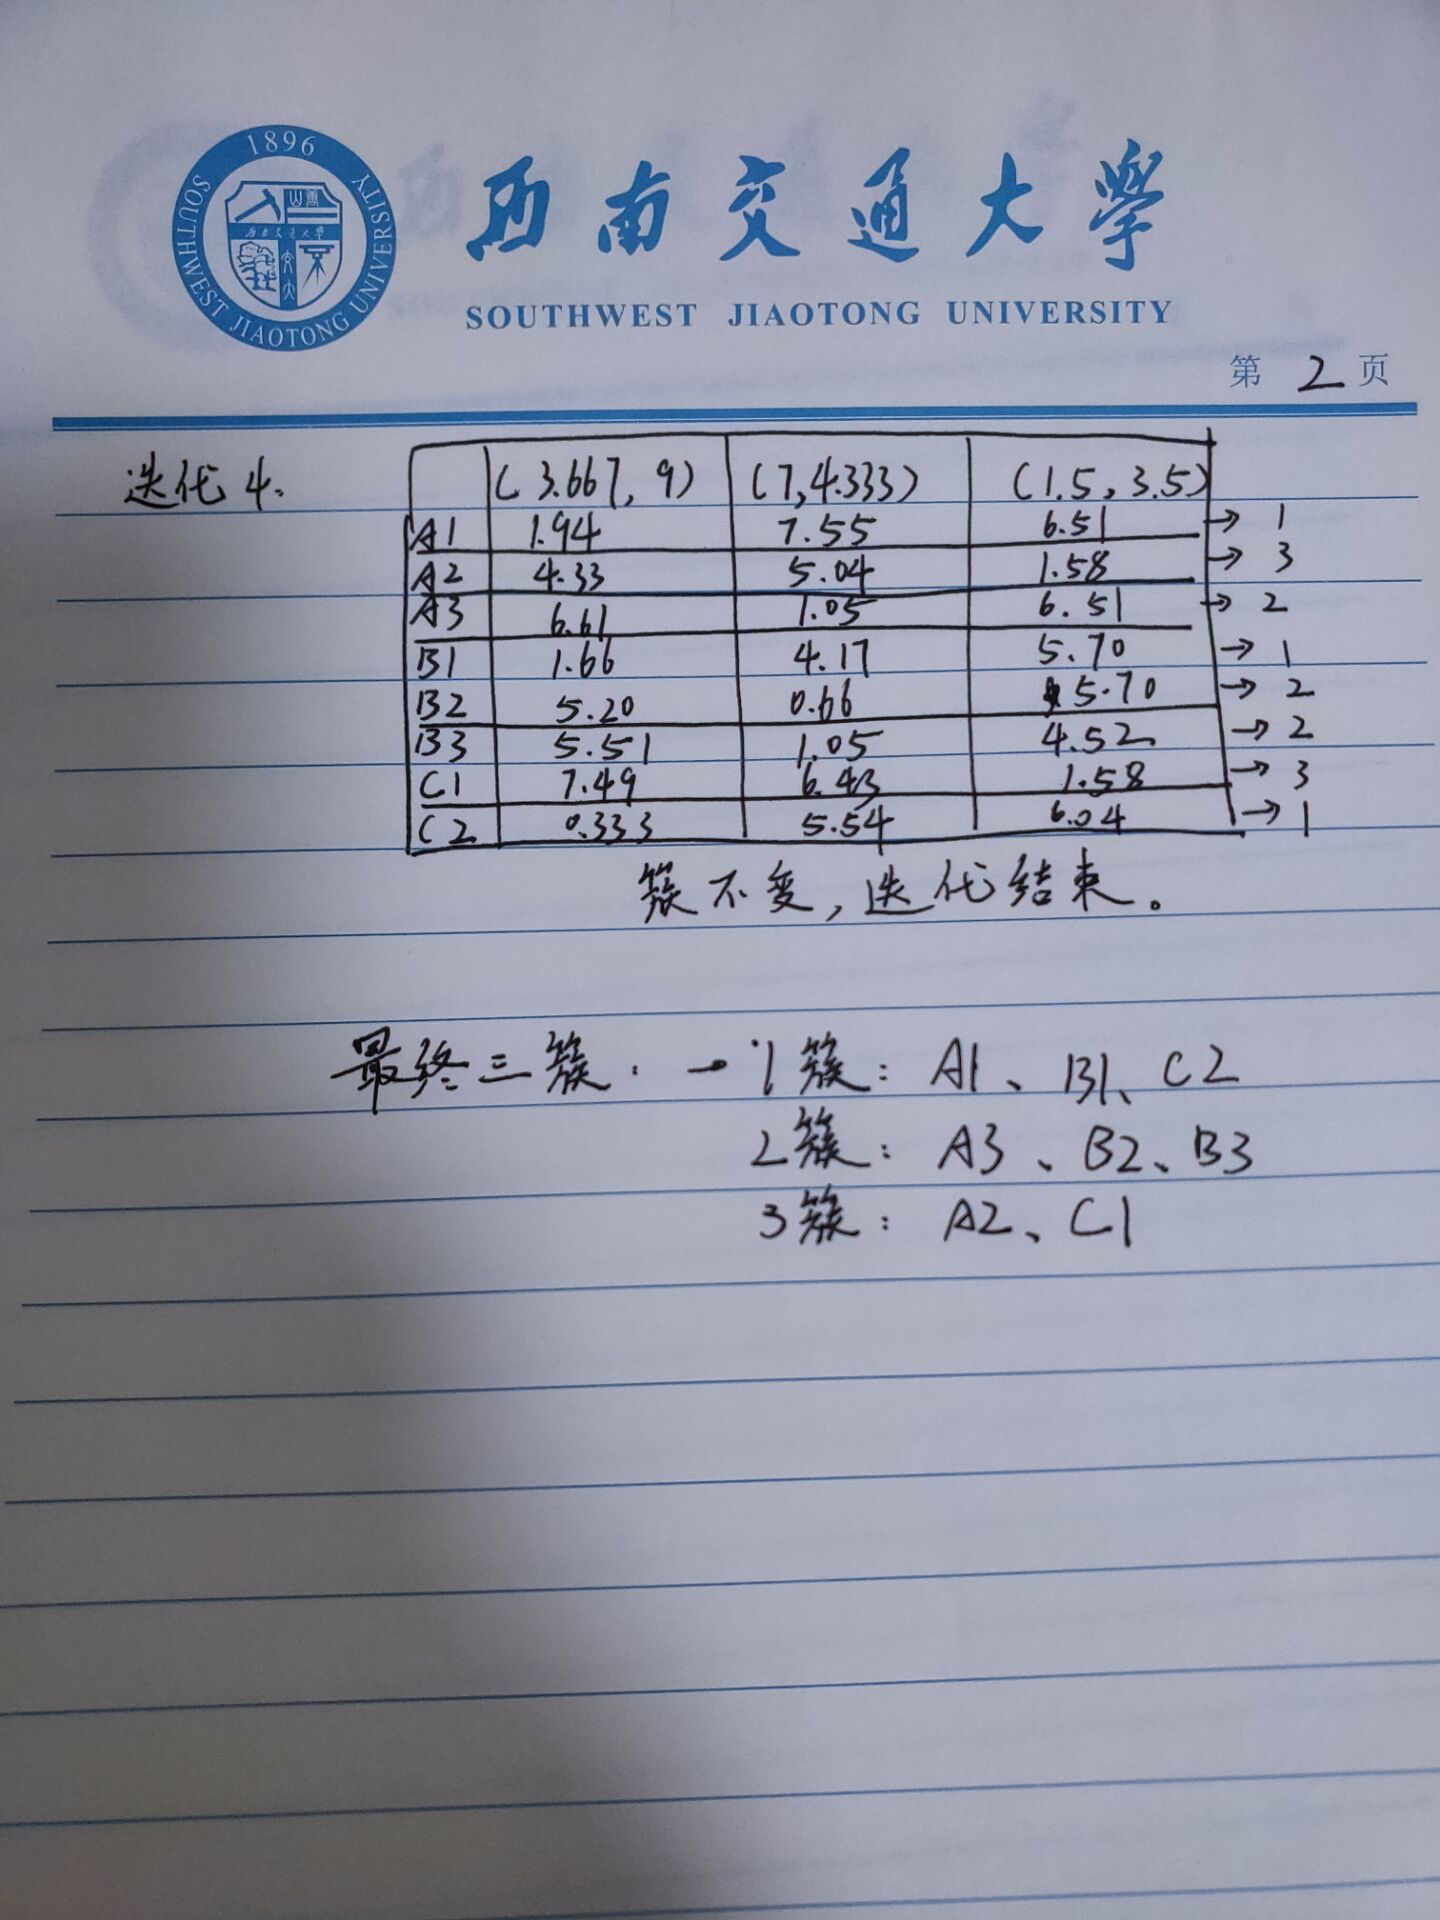 1896
SOUTHWEST JIAOTONG UNIVERSITY
西南交通大学
西南交通大學
SOUTHWEST JIAOTONG UNIVERSITY
第 2 页
迭代4.
(3.667, 9) (7, 4.333) (1.5, 3.5)
A1 1.94 7.55 6.51 → 1
A2 4.33 5.04 1.58 → 3
A3 6.61 1.05 6.51 → 2
B1 1.66 4.17 5.70 → 1
B2 5.20 0.66 5.70 → 2
B3 5.51 1.05 4.52 → 2
C1 7.49 6.43 1.58 → 3
C2 0.333 5.54 6.04 → 1
簇不变,迭代结束。
最终三簇: 1簇: A1、B1、C2
2簇: A3、B2、B3
3簇: A2、C1